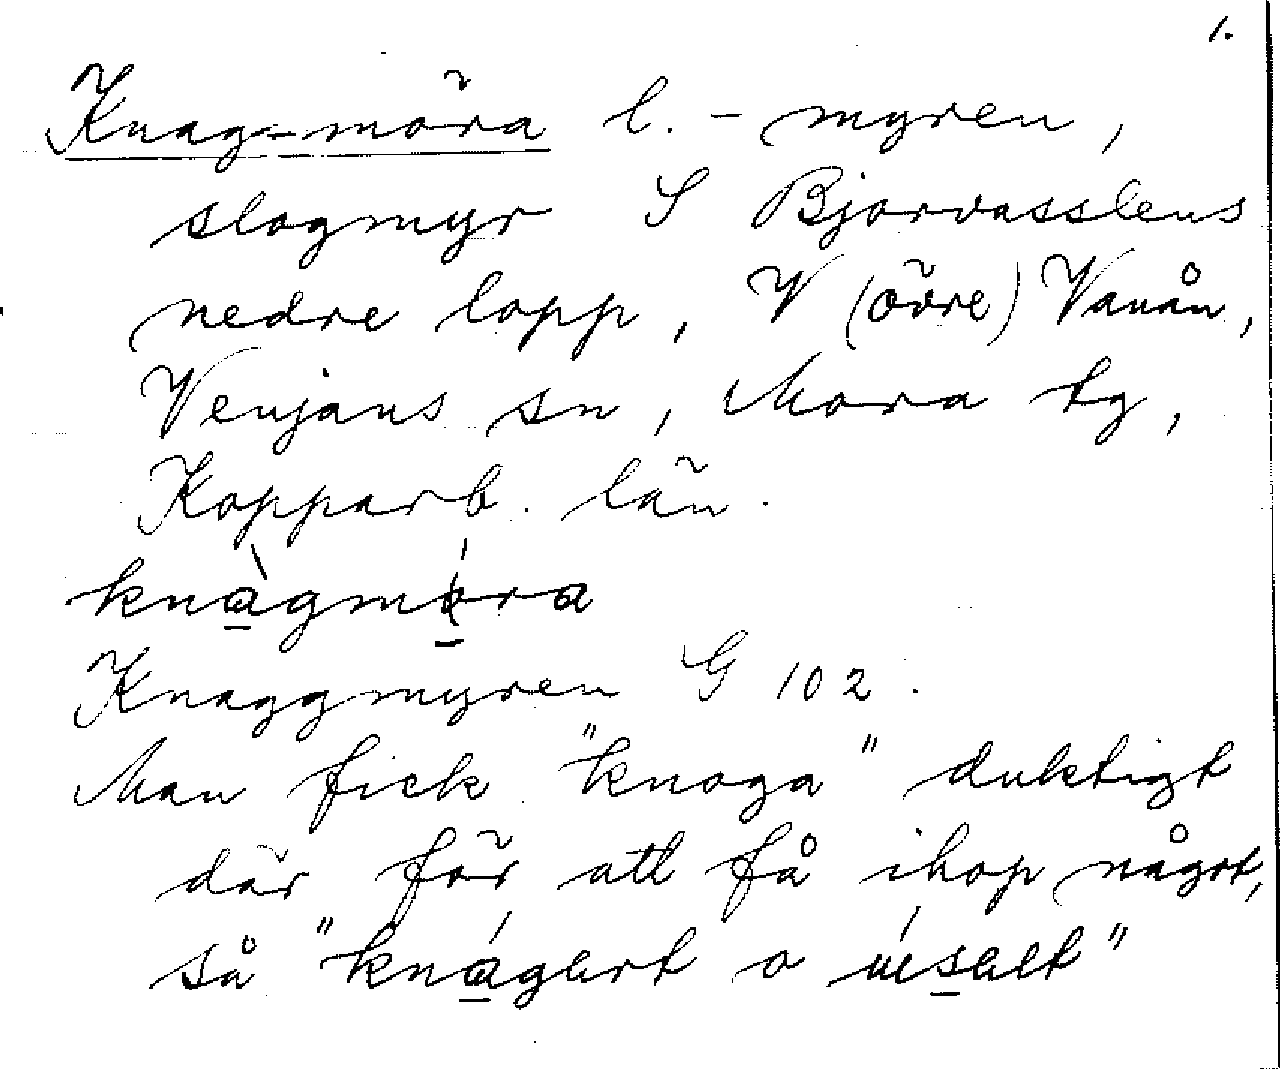 1.
Knag-möra l. - myren,
slogmyr S Bjorvasslens
nedre lopp, V (övre) Vanån,
Venjans sn, Mora tg,
Kopparb. län.
Knaggmyren G 102.
Man fick "knoga" duktigt
där för att få ihop någɔt,
så o